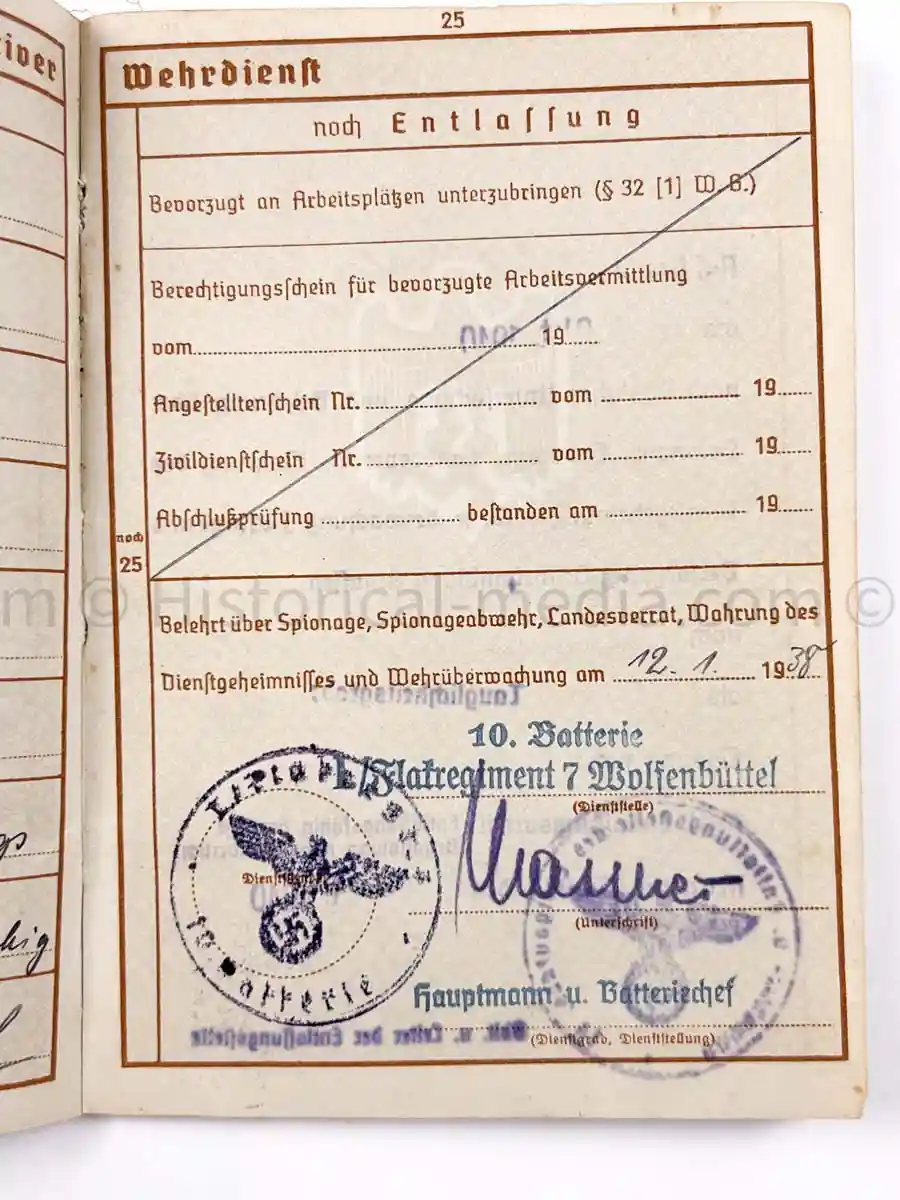 25
Wehrdienst
noch Entlassung
Bevorzugt an Arbeitsplätzen unterzubringen (§ 32 [1] W. G.)
Berechtigungsschein für bevorzugte Arbeitsvermittlung
vom 19
Angestelltenschein Nr. vom 19
Zivildienstschein Nr. vom 19
Abschlußprüfung bestanden am 19
noch
25
Belehrt über Spionage, Spionageabwehr, Landesverrat, Wahrung des
Dienstgeheimnisses und Wehrüberwachung am 12. 1. 1938
m © Historical-media.com ©
10. Batterie
I./Flakregiment 7 Wolfenbüttel
(Dienststelle)
Dienstsiegel
10. Batterie
(Unterschrift)
Hauptmann u. Batteriechef
(Dienstgrad, Dienststellung)